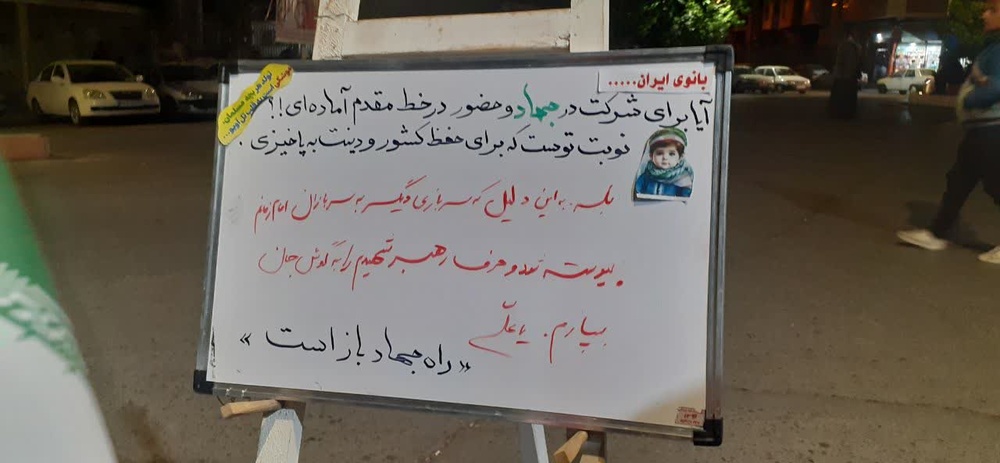 بانوی ایران.....
تولد هر بچه مسلمان،
موشکی است به قلب تل آویو...
آیا برای شرکت در جهاد و حضور در خط مقدم آماده ای!؟
نوبت توست که برای حفظ کشور و دینت به پا خیزی.
بله. به این دلیل که سربازی دیگر به سربازان امام زمانم
پیوسته شود و حرف رهبر شهیدم را به گوش جان
بسپارم. یا علی
«راه جهاد باز است»